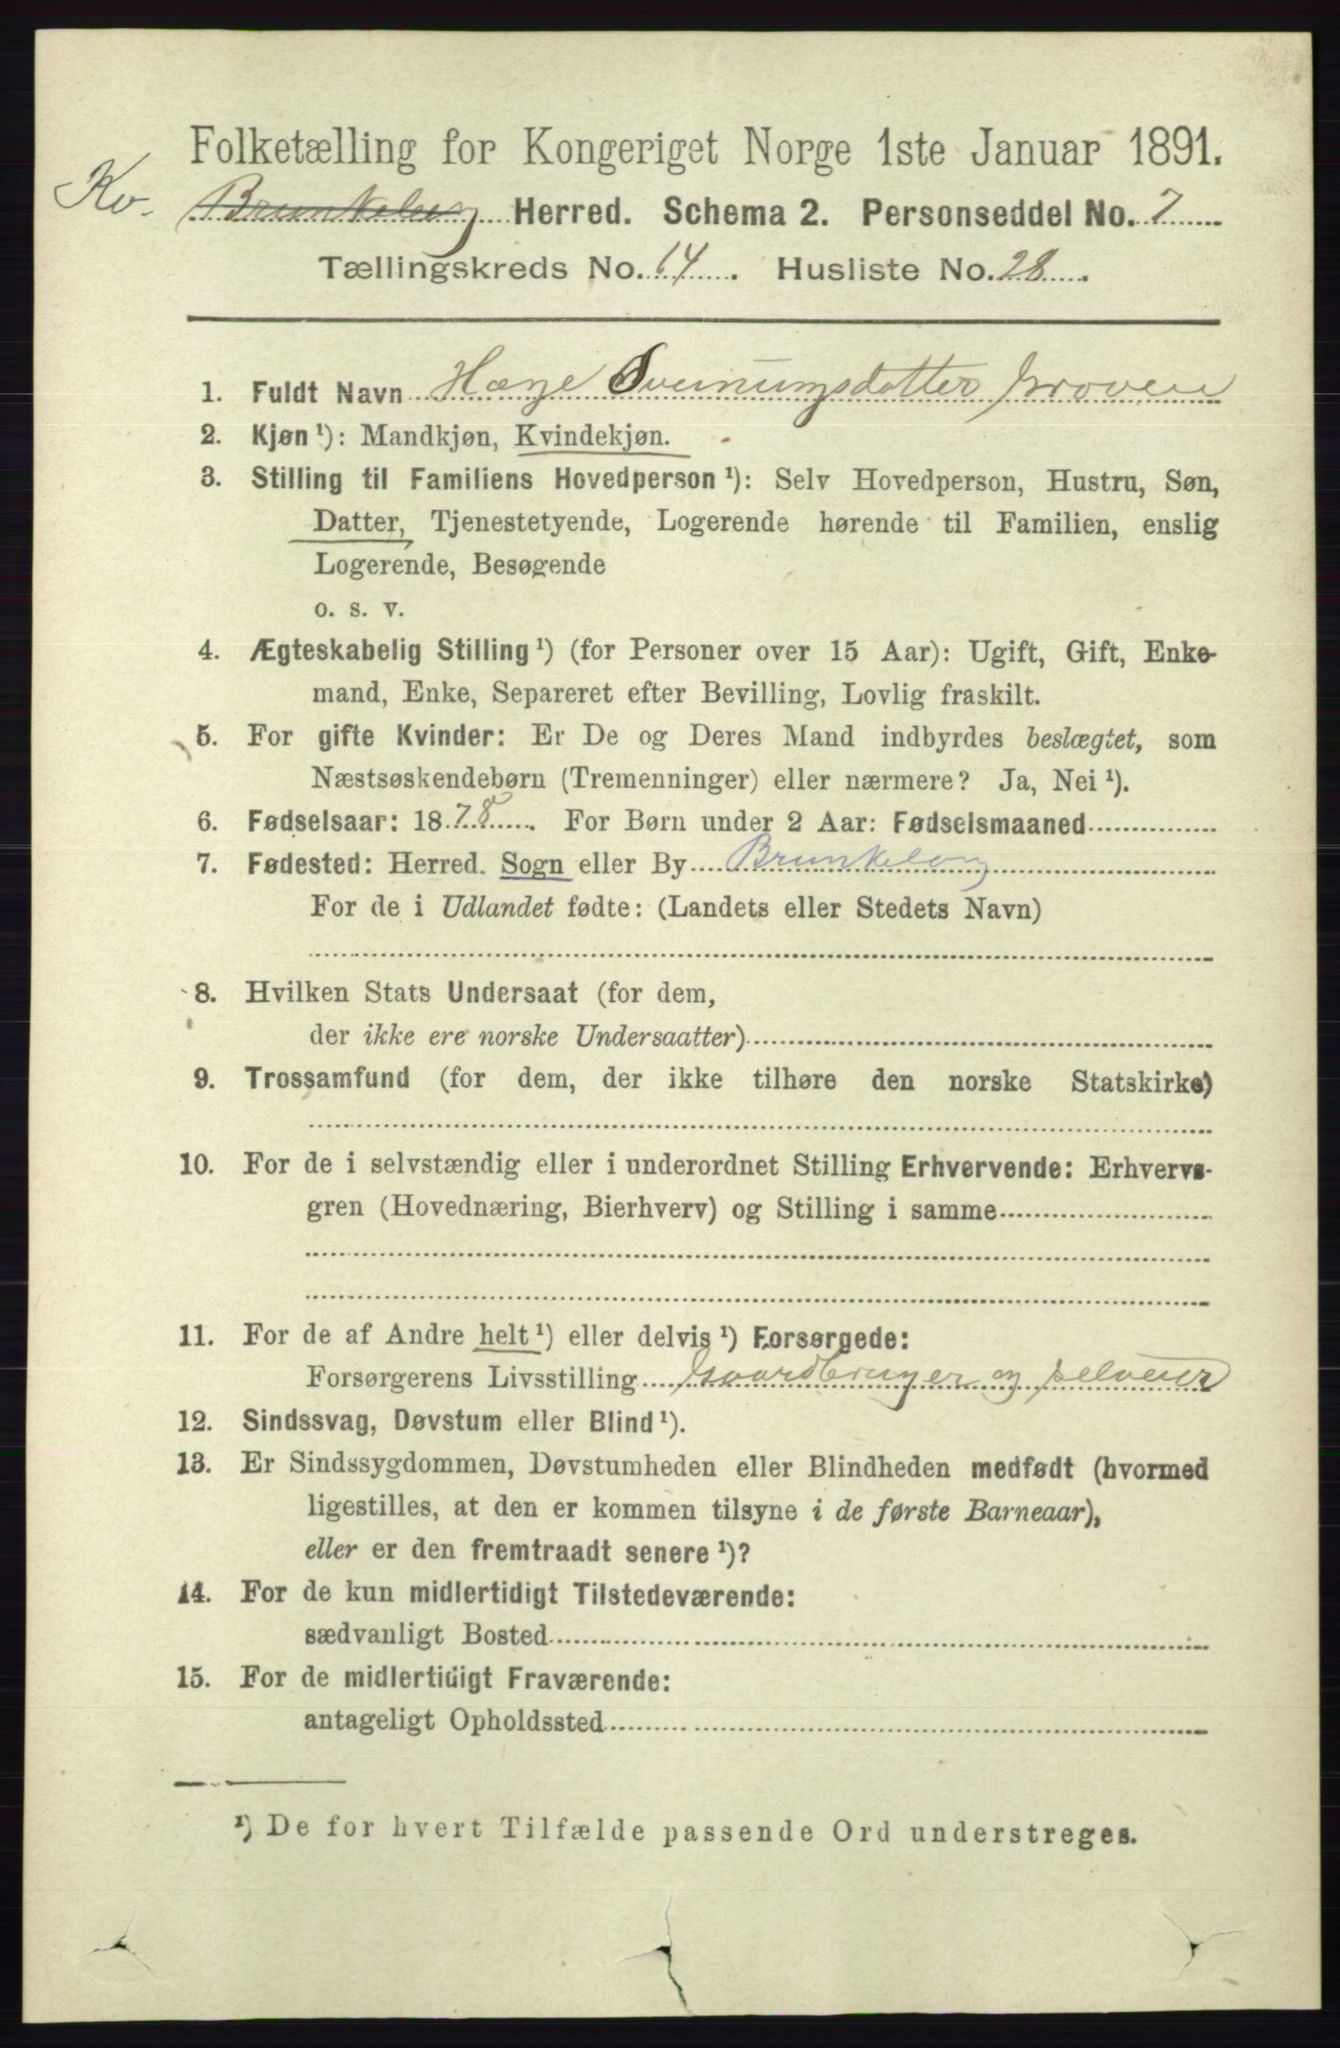 Folketælling for Kongeriget Norge 1ste Januar 1891.
Kv. Brunkeberg Herred. Schema 2. Personseddel No. 7
Tællingskreds No. 14. Husliste No. 28.
1. Fuldt Navn Hæge Sveinungsdatter Groven
2. Kjøn ¹): Mandkjøn, Kvindekjøn.
3. Stilling til Familiens Hovedperson ¹): Selv Hovedperson, Hustru, Søn,
Datter, Tjenestetyende, Logerende hørende til Familien, enslig
Logerende, Besøgende
o. s. v.
4. Ægteskabelig Stilling ¹) (for Personer over 15 Aar): Ugift, Gift, Enke-
mand, Enke, Separeret efter Bevilling, Lovlig fraskilt.
5. For gifte Kvinder: Er De og Deres Mand indbyrdes beslægtet, som
Næstsøskendebørn (Tremenninger) eller nærmere? Ja, Nei ¹).
6. Fødselsaar: 1878. For Børn under 2 Aar: Fødselsmaaned
7. Fødested: Herred. Sogn eller By Brunkeberg
For de i Udlandet fødte: (Landets eller Stedets Navn)
8. Hvilken Stats Undersaat (for dem,
der ikke ere norske Undersaatter)
9. Trossamfund (for dem, der ikke tilhøre den norske Statskirke)
10. For de i selvstændig eller i underordnet Stilling Erhvervende: Erhvervs-
gren (Hovednæring, Bierhverv) og Stilling i samme
11. For de af Andre helt ¹) eller delvis ¹) Forsørgede:
Forsørgerens Livsstilling Gaardbruger og selveier
12. Sindssvag, Døvstum eller Blind ¹).
13. Er Sindssygdommen, Døvstumheden eller Blindheden medfødt (hvormed
ligestilles, at den er kommen tilsyne i de første Barneaar),
eller er den fremtraadt senere ¹)?
14. For de kun midlertidigt Tilstedeværende:
sædvanligt Bosted
15. For de midlertidigt Fraværende:
antageligt Opholdssted
¹) De for hvert Tilfælde passende Ord understreges.